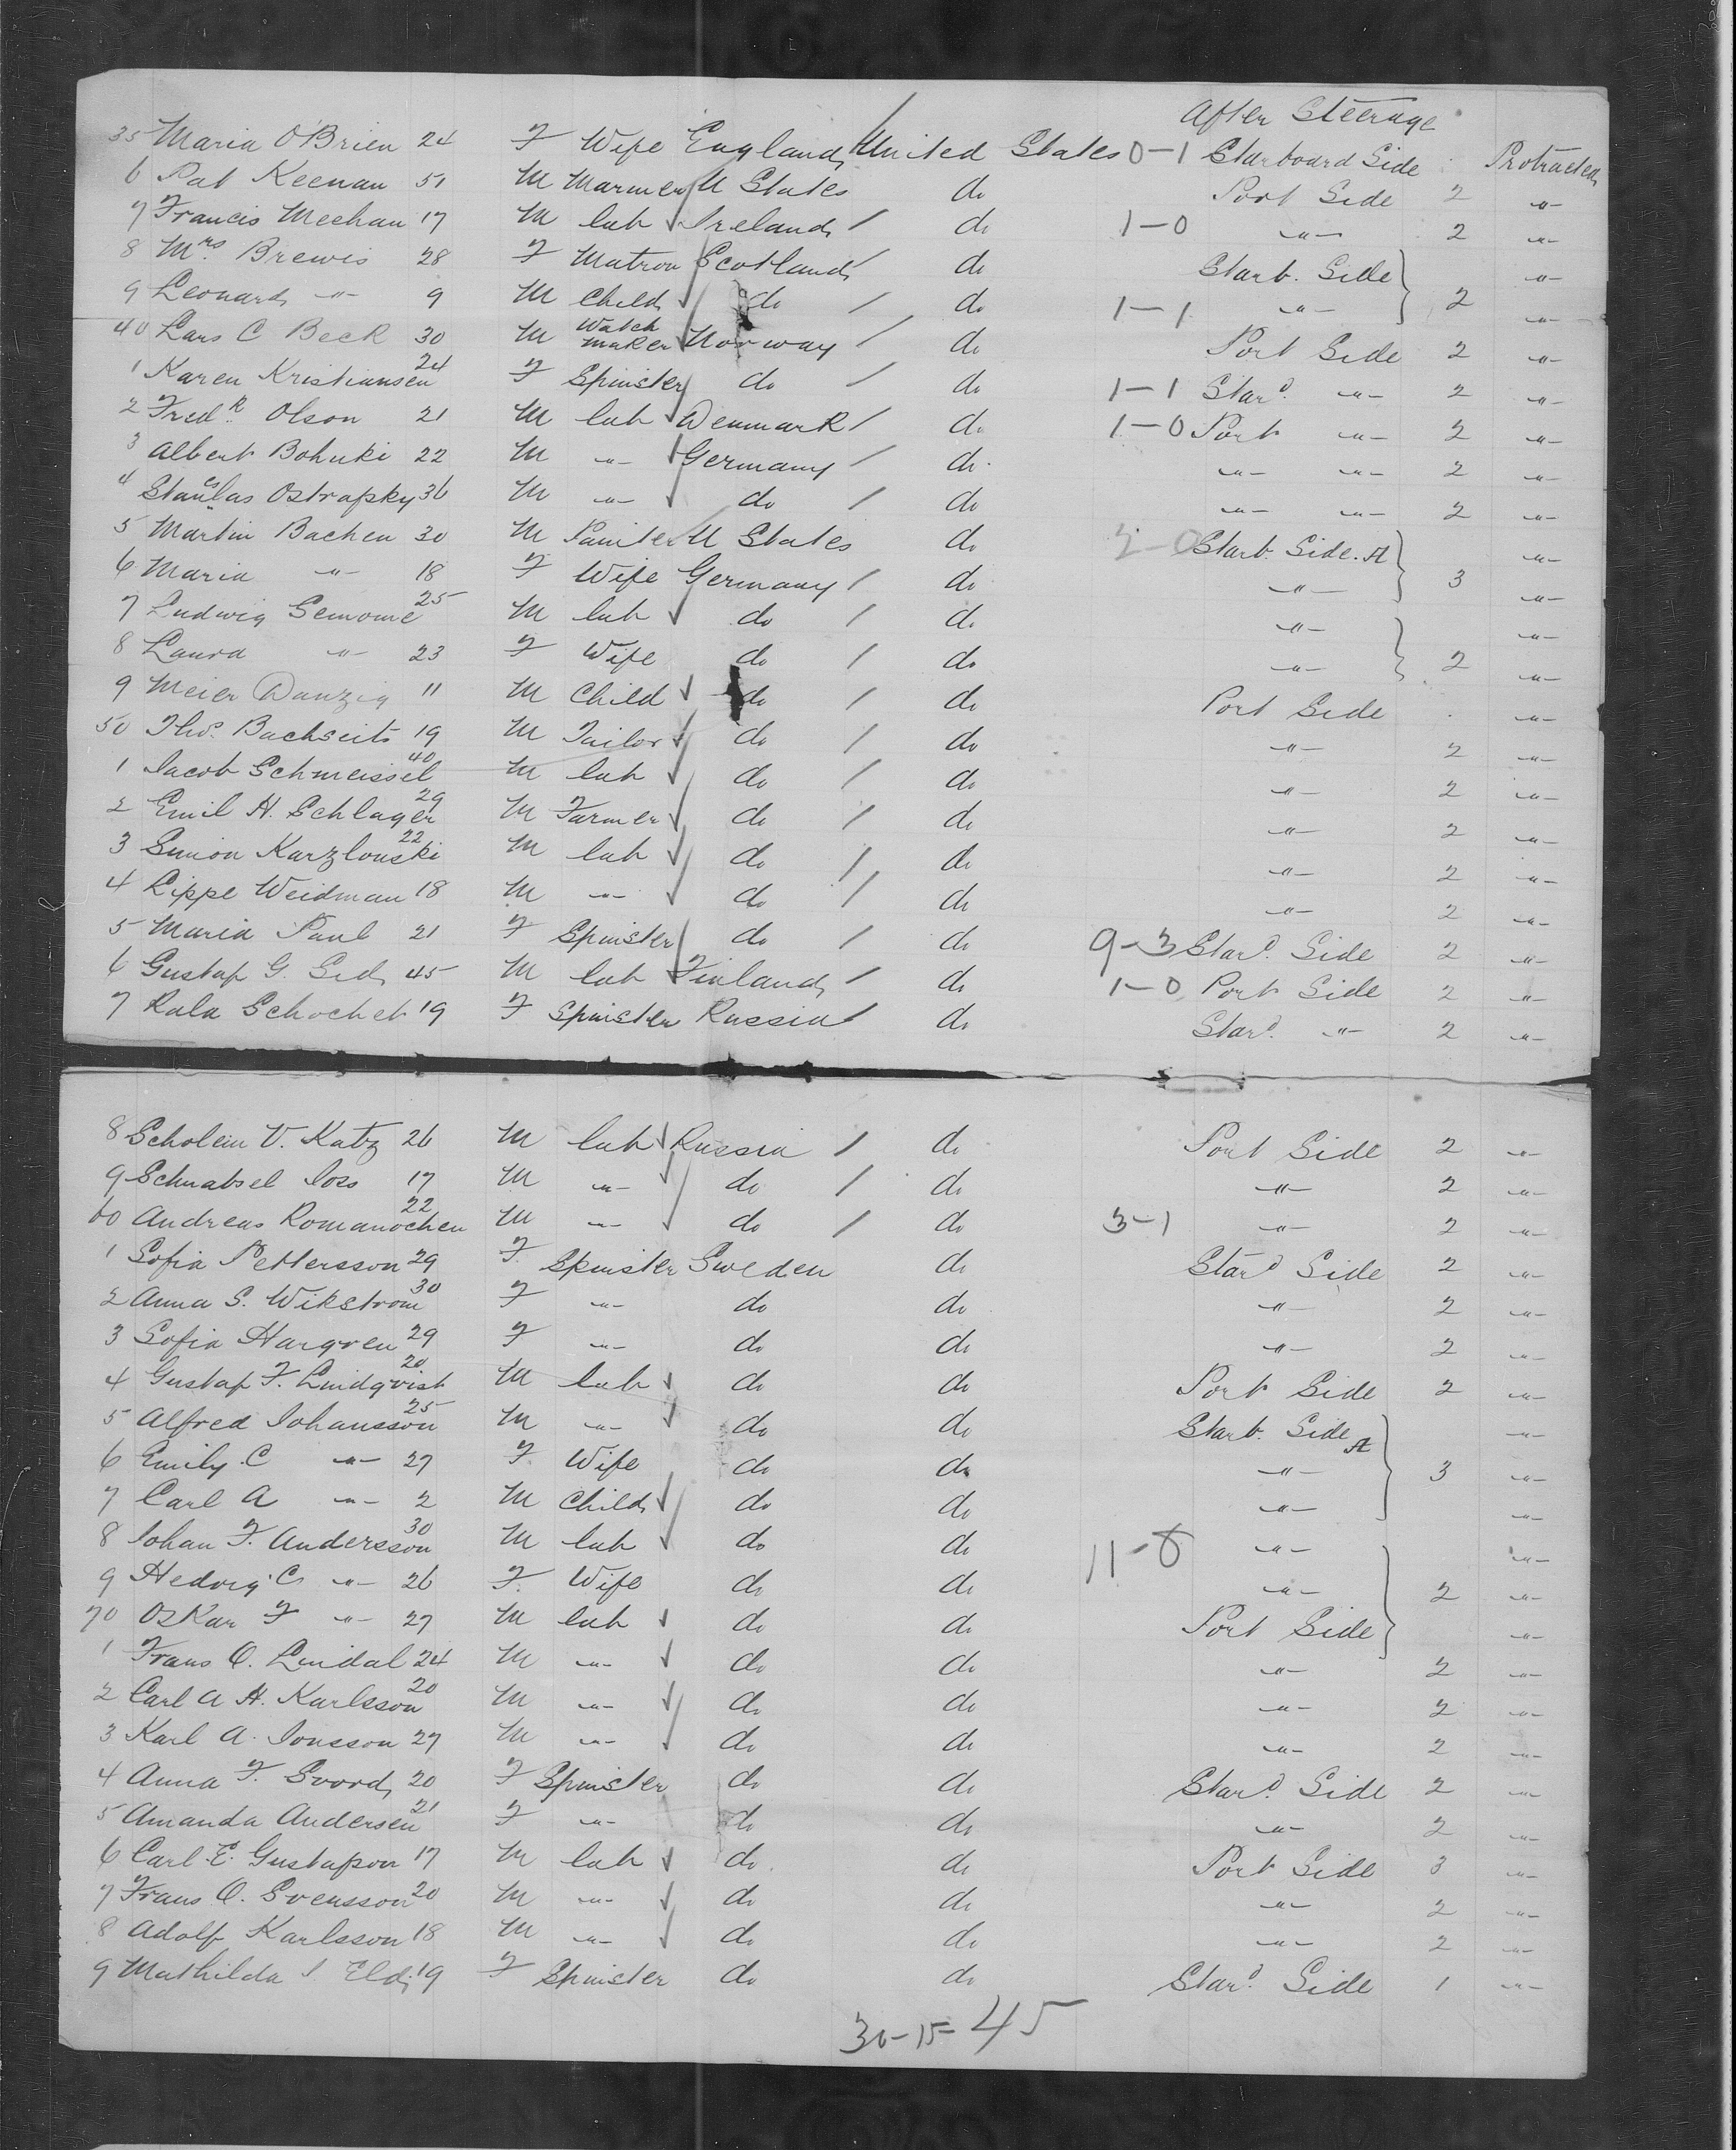 After Steerage
35 Maria O'Brien 24 F Wife England United States 0-1 Starboard Side Protracted
6 Pat Keenan 51 M Marmer U States do Port Side 2 "
7 Francis Meehan 17 M lab Ireland / do 1-0 " 2 "
8 Mrs. Brewis 28 F Matron Scotland / do Starb. Side "
9 Leonard " 9 M Child do / do 1-1 " 2 "
40 Lars C Beck 30 M Watch maker Norway / do Port Side 2 "
1 Karen Kristiansen 24 F Spinster do / do 1-1 Stard. " 2 "
2 Fredk. Olson 21 M lab Denmark / do 1-0 Port " 2 "
3 Albert Bohuki 22 M " Germany / do " " 2 "
4 Staneslas Ostrapsky 36 M " do / do " " 2 "
5 Martin Bachen 30 M Painter U States do 2-0 Starb. Side. A "
6 Maria " 18 F Wife Germany / do " 3 "
7 Ludwig Semome 25 M lab do / do " "
8 Laura " 23 F Wife do / do " 2 "
9 Meier Danzig 11 M Child do / do Port Side "
50 Thos. Bachseits 19 M Tailor do / do " 2 "
1 Jacob Schmeissel 40 M lab do / do " 2 "
2 Emil H. Schlager 29 M Farmer do / do " 2 "
3 Simon Karzlouski 22 M lab do / do " 2 "
4 Lippe Weidman 18 M " do / do " 2 "
5 Maria Paul 21 F Spinster do / do 9-3 Stard. Side 2 "
6 Gustaf G. Sid 45 M lab Finland / do 1-0 Port Side 2 "
7 Rala Schochet 19 F Spinster Russia / do Stard. " 2 "
8 Scholem V. Katz 26 M lab Russia / do Port Side 2 "
9 Schnabsel Joss 17 M " do / do " 2 "
60 Andreas Romanochen 22 M " do / do 3-1 " 2 "
1 Sofia Pettersson 29 F Spinster Sweden do Stard Side 2 "
2 Anna S. Wikstrom 30 F " do do " 2 "
3 Sofia Hargren 29 F " do do " 2 "
4 Gustaf F. Lindqvist 20 M lab do do Port Side 2 "
5 Alfred Johansson 25 M " do do Starb. Side A "
6 Emily C " 27 F Wife do do " 3 "
7 Carl A " 2 M Child do do " "
8 Johan F. Andersson 30 M lab do do 11-8 " "
9 Hedvig C " 26 F Wife do do " 2 "
70 Oskar F " 27 M lab do do Port Side "
1 Frans O. Lindal 24 M " do do " 2 "
2 Carl A H. Karlsson 20 M " do do " 2 "
3 Karl A. Jonsson 27 M " do do " 2 "
4 Anna F. Svord 20 F Spinster do do Stard. Side 2 "
5 Amanda Andersen 21 F " do do " 2 "
6 Carl E. Gustafson 17 M lab do do Port Side 3 "
7 Frans O. Svensson 20 M " do do " 2 "
8 Adolf Karlsson 18 M " do do " 2 "
9 Mathilda J. Eld 19 F Spinster do do Stard. Side 1 "
30-15-45